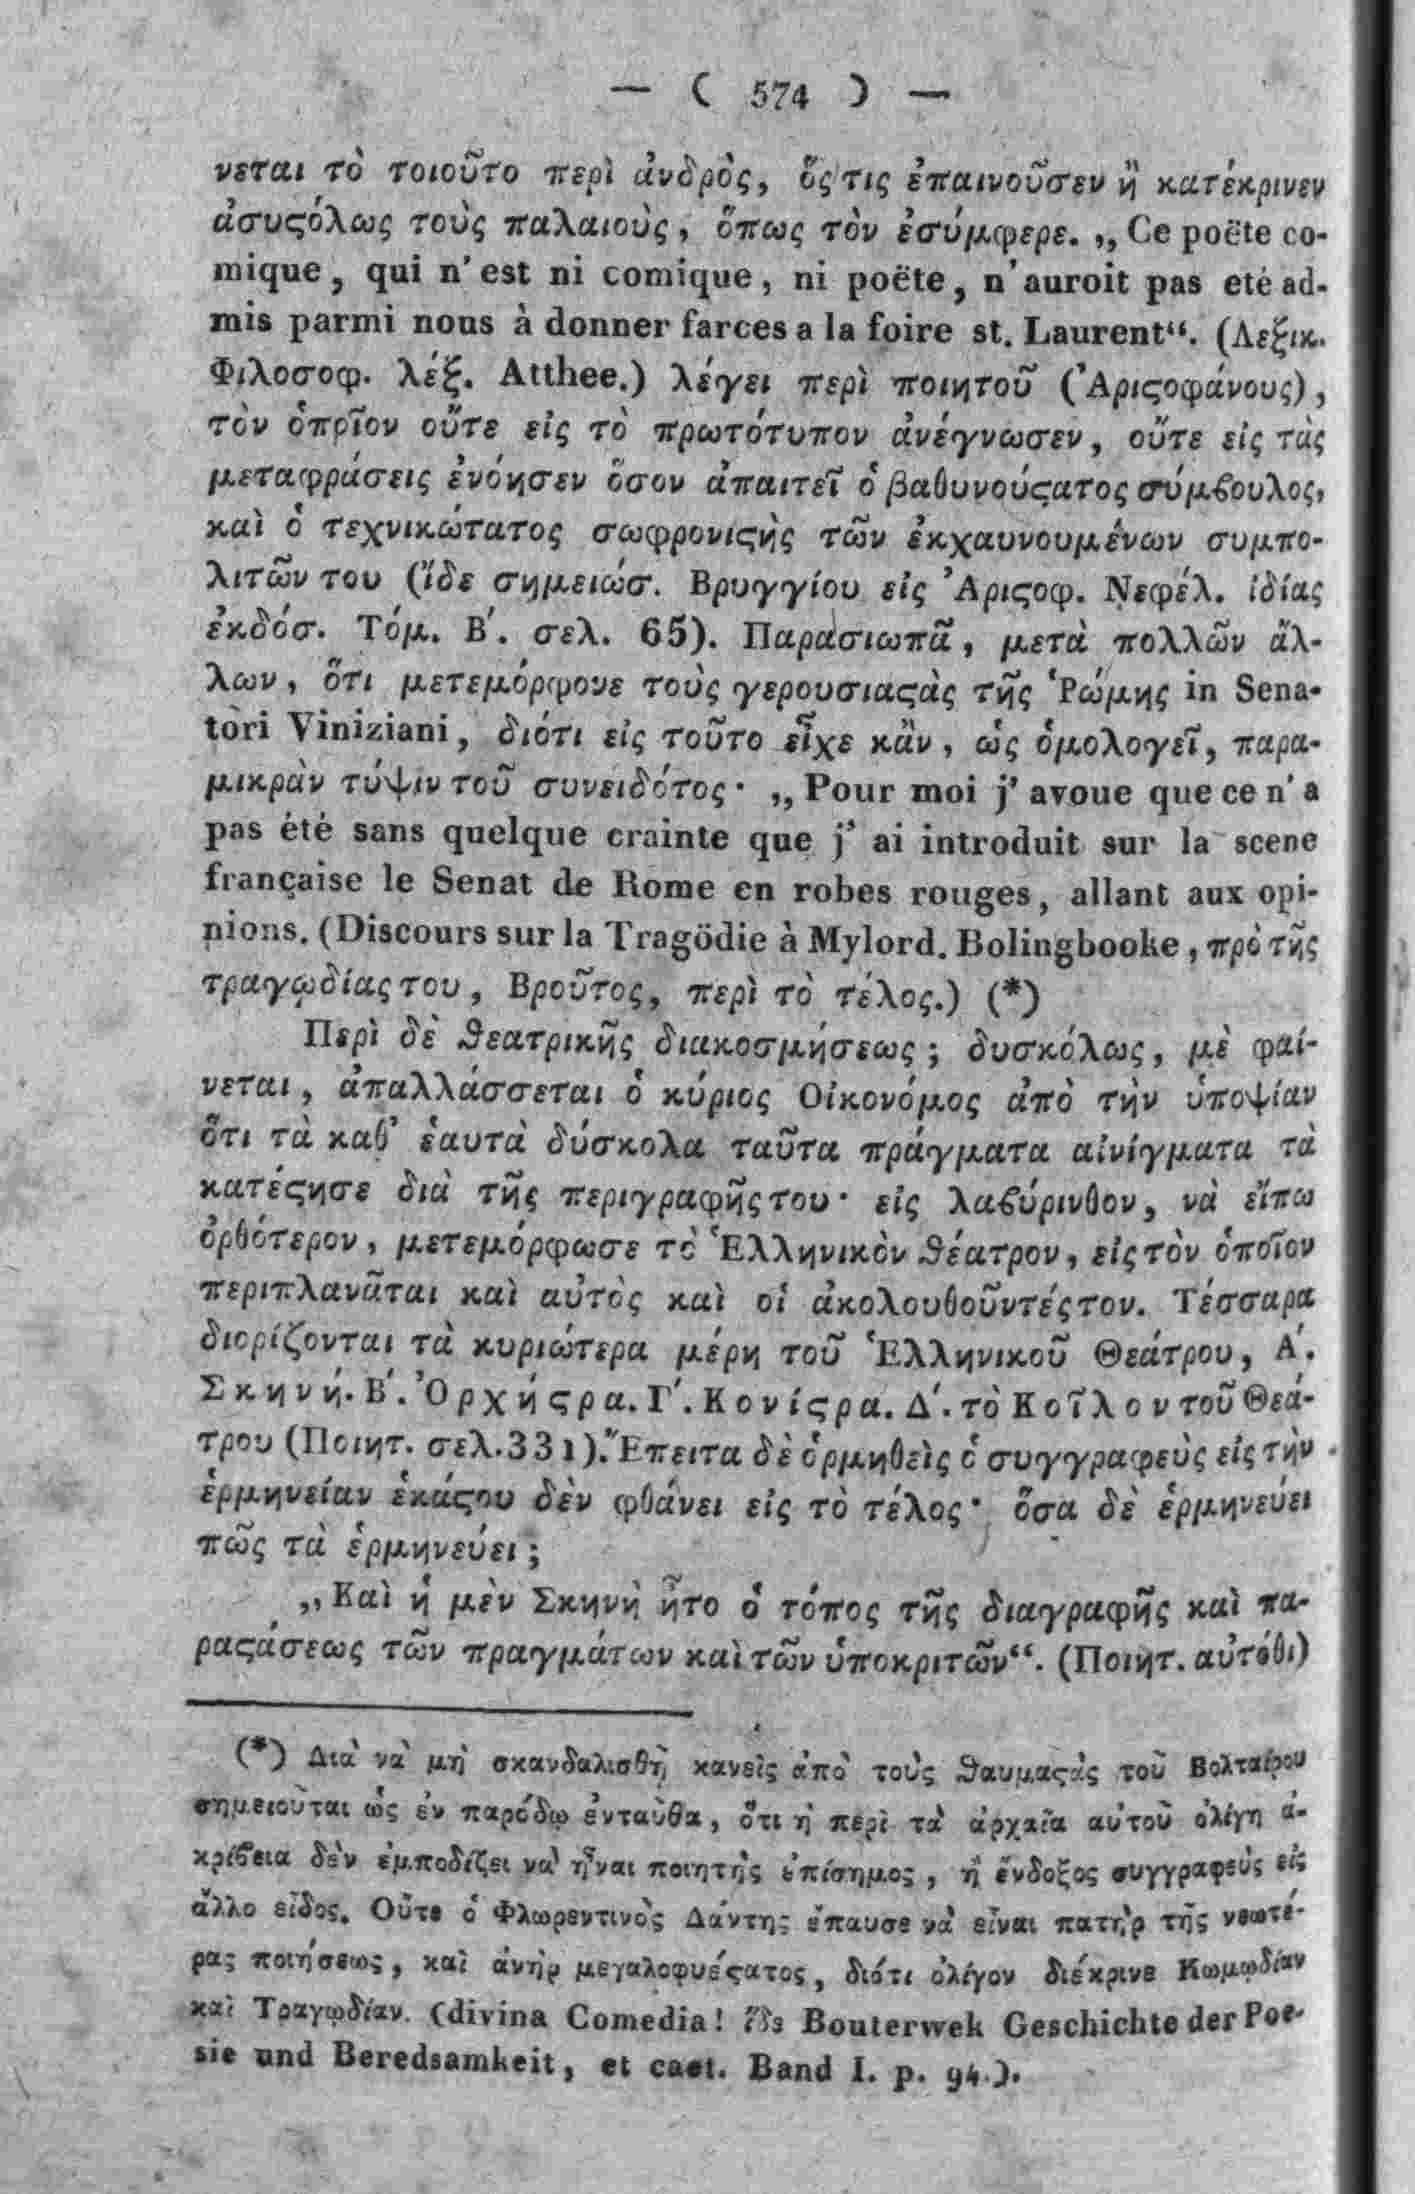 — ( 574 ) —
νεται τὸ τοιοῦτο περὶ ἀνδρὸς, ὅςτις ἐπαινοῦσεν ἢ κατέκρινεν
ἀσυϛόλως τοὺς παλαιοὺς, ὅπως τὸν ἐσύμφερε. „ Ce poëte co-
mique, qui n' est ni comique, ni poëte, n' auroit pas eté ad-
mis parmi nous à donner farces a la foire st. Laurent“. (Λεξικ.
Φιλοσοφ. λέξ. Atthee.) λέγει περὶ ποιητοῦ (Ἀριϛοφάνους),
τὸν ὁπρῖον οὔτε εἰς τὸ πρωτότυπον ἀνέγνωσεν, οὔτε εἰς τὰς
μεταφράσεις ἐνόησεν ὅσον ἀπαιτεῖ ὁ βαθυνούϛατος σύμβουλος,
καὶ ὁ τεχνικώτατος σωφρονιϛὴς τῶν ἐκχαυνουμένων συμπο-
λιτῶν του (ἴδε σημειώσ. Βρυγγίου εἰς Ἀριϛοφ. Νεφέλ. ἰδίας
ἐκδόσ. Τόμ. Β΄. σελ. 65). Παρασιωπᾶ, μετὰ πολλῶν ἄλ-
λων, ὅτι μετεμόρφονε τοὺς γερουσιαϛὰς τῆς Ῥώμης in Sena-
tori Viniziani, διότι εἰς τοῦτο εἶχε κἂν, ὡς ὁμολογεῖ, παρα-
μικρὰν τύψιν τοῦ συνειδότος· „ Pour moi j' avoue que ce n' a
pas été sans quelque crainte que j' ai introduit sur la scene
française le Senat de Rome en robes rouges, allant aux opi-
nions. (Discours sur la Tragödie à Mylord. Bolingbooke, πρὸ τῆς
τραγῳδίας του, Βροῦτος, περὶ τὸ τέλος.) (*)
Περὶ δὲ θεατρικῆς διακοσμήσεως; δυσκόλως, μὲ φαί-
νεται, ἀπαλλάσσεται ὁ κύριος Οἰκονόμος ἀπὸ τὴν ὑποψίαν
ὅτι τὰ καθ' ἑαυτὰ δύσκολα ταῦτα πράγματα αἰνίγματα τὰ
κατέϛησε διὰ τῆς περιγραφῆς του· εἰς λαβύρινθον, νὰ εἴπω
ὀρθότερον, μετεμόρφωσε τὸ Ἑλληνικὸν θέατρον, εἰς τὸν ὁποῖον
περιπλανᾶται καὶ αὐτὸς καὶ οἱ ἀκολουθοῦντές τον. Τέσσαρα
διορίζονται τὰ κυριώτερα μέρη τοῦ Ἑλληνικοῦ Θεάτρου, Α΄.
Σκηνή. Β΄. Ὀρχήϛρα. Γ΄. Κονίϛρα. Δ΄. τὸ Κοῖλον τοῦ Θεά-
τρου (Ποιητ. σελ. 331). Ἔπειτα δὲ ὁρμηθεὶς ὁ συγγραφεὺς εἰς τὴν
ἑρμηνείαν ἑκάϛου δὲν φθάνει εἰς τὸ τέλος· ὅσα δὲ ἑρμηνεύει
πῶς τὰ ἑρμηνεύει;
„Καὶ ἡ μὲν Σκηνὴ ἦτο ὁ τόπος τῆς διαγραφῆς καὶ πα-
ραϛάσεως τῶν πραγμάτων καὶ τῶν ὑποκριτῶν“. (Ποιητ. αὐτόθι)
(*) Διὰ νὰ μὴ σκανδαλισθῇ κανεὶς ἀπὸ τοὺς θαυμαϛὰς τοῦ Βολταίρου
σημειοῦται ὡς ἐν παρόδῳ ἐνταῦθα, ὅτι ἡ περὶ τὰ ἀρχαῖα αὐτοῦ ὀλίγη ἀ-
κρίβεια δὲν ἐμποδίζει νὰ ἦναι ποιητὴς ἐπίσημος, ἢ ἔνδοξος συγγραφεὺς εἰς
ἄλλο εἶδος. Οὔτε ὁ Φλωρεντινὸς Δάντης ἔπαυσε νὰ εἶναι πατὴρ τῆς νεωτέ-
ρας ποιήσεως, καὶ ἀνὴρ μεγαλοφυέϛατος, διότι ὀλίγον διέκρινε Κωμῳδίαν
καὶ Τραγῳδίαν. (divina Comedia! ἴδε Bouterwek Geschichte der Poe-
sie und Beredsamkeit, et caet. Band I. p. 94.).